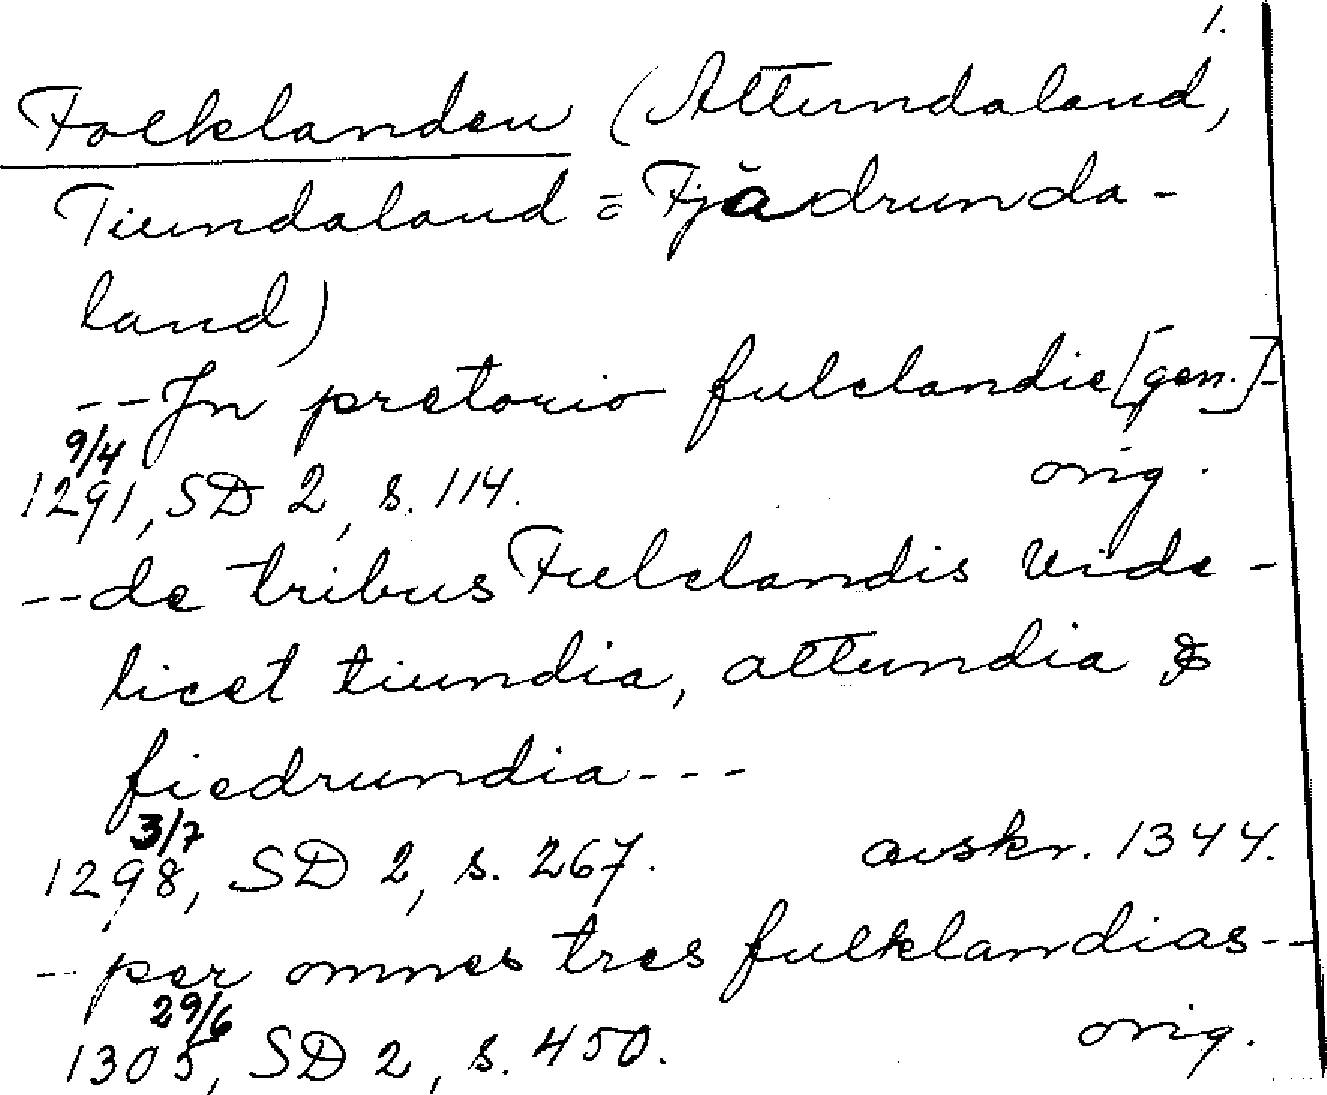 1.
Folklanden (Attundaland,
Tiundaland o Fjädrunda-
land)
--In pretorio fulclandie [gen.]-
9/4
1291, SD 2, s. 114. orig.
--de tribus Fulclandis vide-
licet tiundia, attundia &
fiedrundia---
3/7
1298, SD 2, s. 267. avskr. 1344.
-- per omnes tres fulklandias--
29/6
1305, SD 2, s. 450. orig.